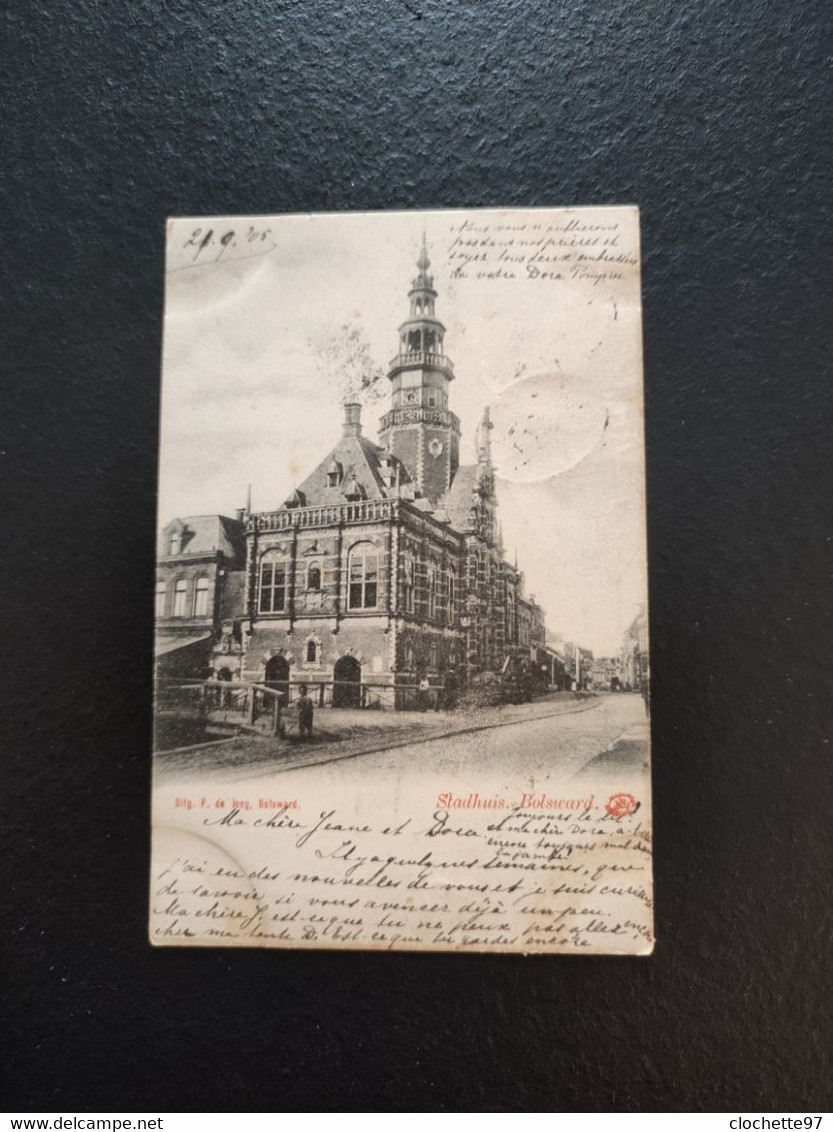 21.9.'05
Nous vous n'oublierons
pas dans nos prières et
soyez tous deux embrassées
da votre Dora
Uitg. P. de Jong, Bolsward.
Stadhuis. Bolsward.
Ma chère Jeane et Dora
toujours le
et ma chèr Dora, a
encore toujours mal dans
sa jambe?
Il y a quelques semaines, que
j'ai en des nouvelles de vous et je suis
de savoir si vous avencer déjà un peu.
Ma chère J. est-ceque tu ne peux pas allez encore
cher ma tante D. Est-ceque tu gardes encore
delcampe.net
clochette97